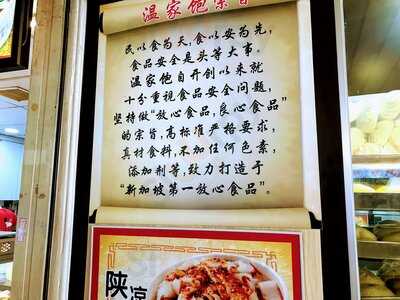 温家饱
民以食为天，食以安为先，
食品安全是头等大事。
温家饱自开创以来就
十分重视食品安全问题，
坚持做“放心食品，良心食品”
的宗旨，高标准严格要求，
真材食料，不加任何色素，
添加剂等，致力打造于
“新加坡第一放心食品”。
陕
凉